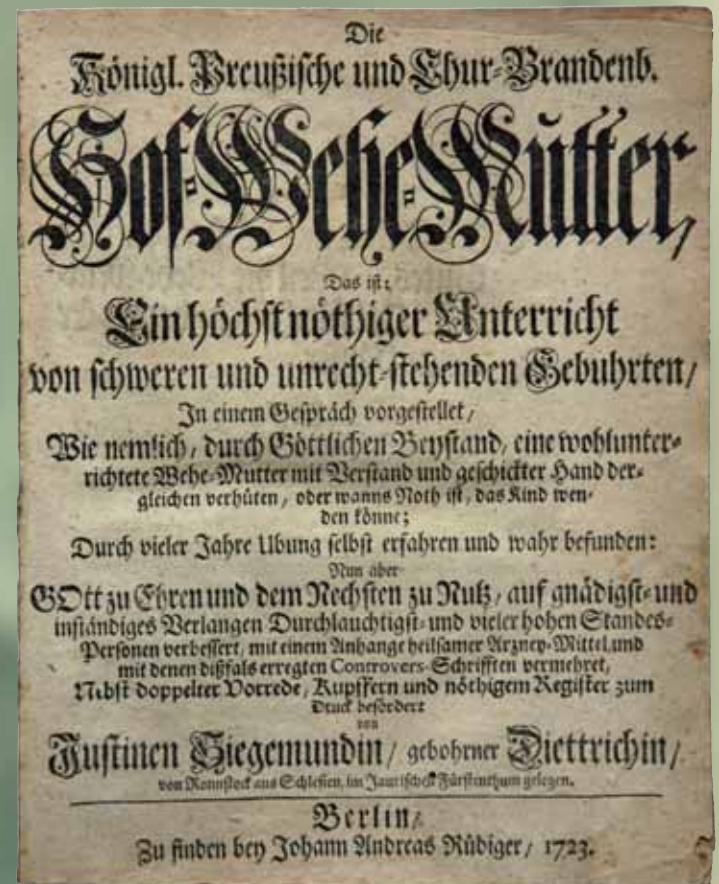 Die
Königl. Preußische und Chur-Brandenb.
Hof-Wehe-Mutter,
Das ist:
Ein höchst nöthiger Unterricht
von schweren und unrecht-stehenden Gebuhrten/
In einem Gespräch vorgestellet/
Wie nemlich/ durch Göttlichen Beystand/ eine wohlunter-
richtete Wehe-Mutter mit Verstand und geschickter Hand der-
gleichen verhüten/ oder wanns Noth ist/ das Kind wen-
den könne;
Durch vieler Jahre Ubung selbst erfahren und wahr befunden:
Nun aber
GOtt zu Ehren und dem Nechsten zu Nutz/ auf gnädigst- und
inständiges Verlangen Durchlauchtigst- und vieler hohen Standes-
Personen verbessert, mit einem Anhange heilsamer Arzney-Mittel und
mit denen dißfals erregten Controvers-Schrifften vermehret,
Nebst doppelter Vorrede/ Kupffern und nöthigem Register zum
Druck befördert
von
Justinen Siegemundin/ gebohrner Diettrichin/
von Ronnstock aus Schlesien, im Jaurischen Fürstenthum gelegen.
Berlin/
Zu finden bey Johann Andreas Rüdiger/ 1723.